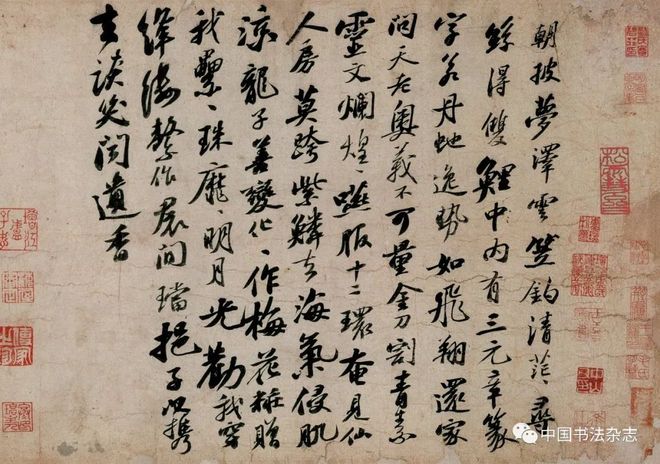 朝披夢澤雲笠釣清茫〻尋
絲得雙鯉中內有三元章篆
字若丹虵逸勢如飛翔還家
問天老奧義不可量金刀割青素
靈文爛煌〻嚥服十二環奄見仙
人房莫跨紫鱗去海氣侵肌
涼龍子善變化〻作梅花糚贈
我纍〻珠靡〻明月光勸我穿
絳縷繫作裙間璫挹子以攜
去談笑聞遺香
中国书法杂志